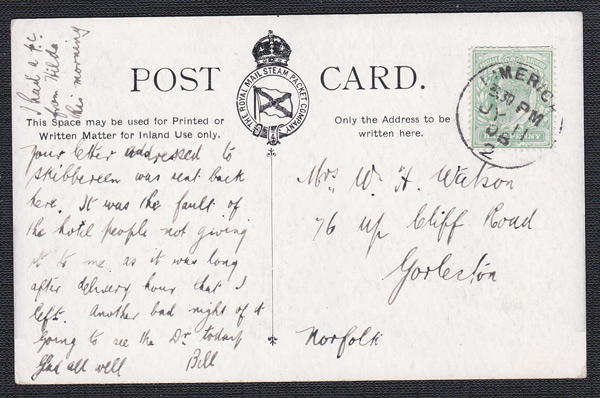 I had a p.c.
from Hilda
this morning
POST CARD.
THE ROYAL MAIL STEAM PACKET COMPANY
This Space may be used for Printed or
Written Matter for Inland Use only.
Only the Address to be
written here.
LIMERICK
5.30 PM
JY
08
2
PENNY
your letter addressed to
Skibbereen was sent back
here. It was the fault of
the hotel people not giving
it to me as it was long
after delivery hour that I
left. Another bad night of it
Going to see the Dr today
Glad all well Bill
Mrs W. H. Watson
76 up Cliff Road
Gorleston
Norfolk